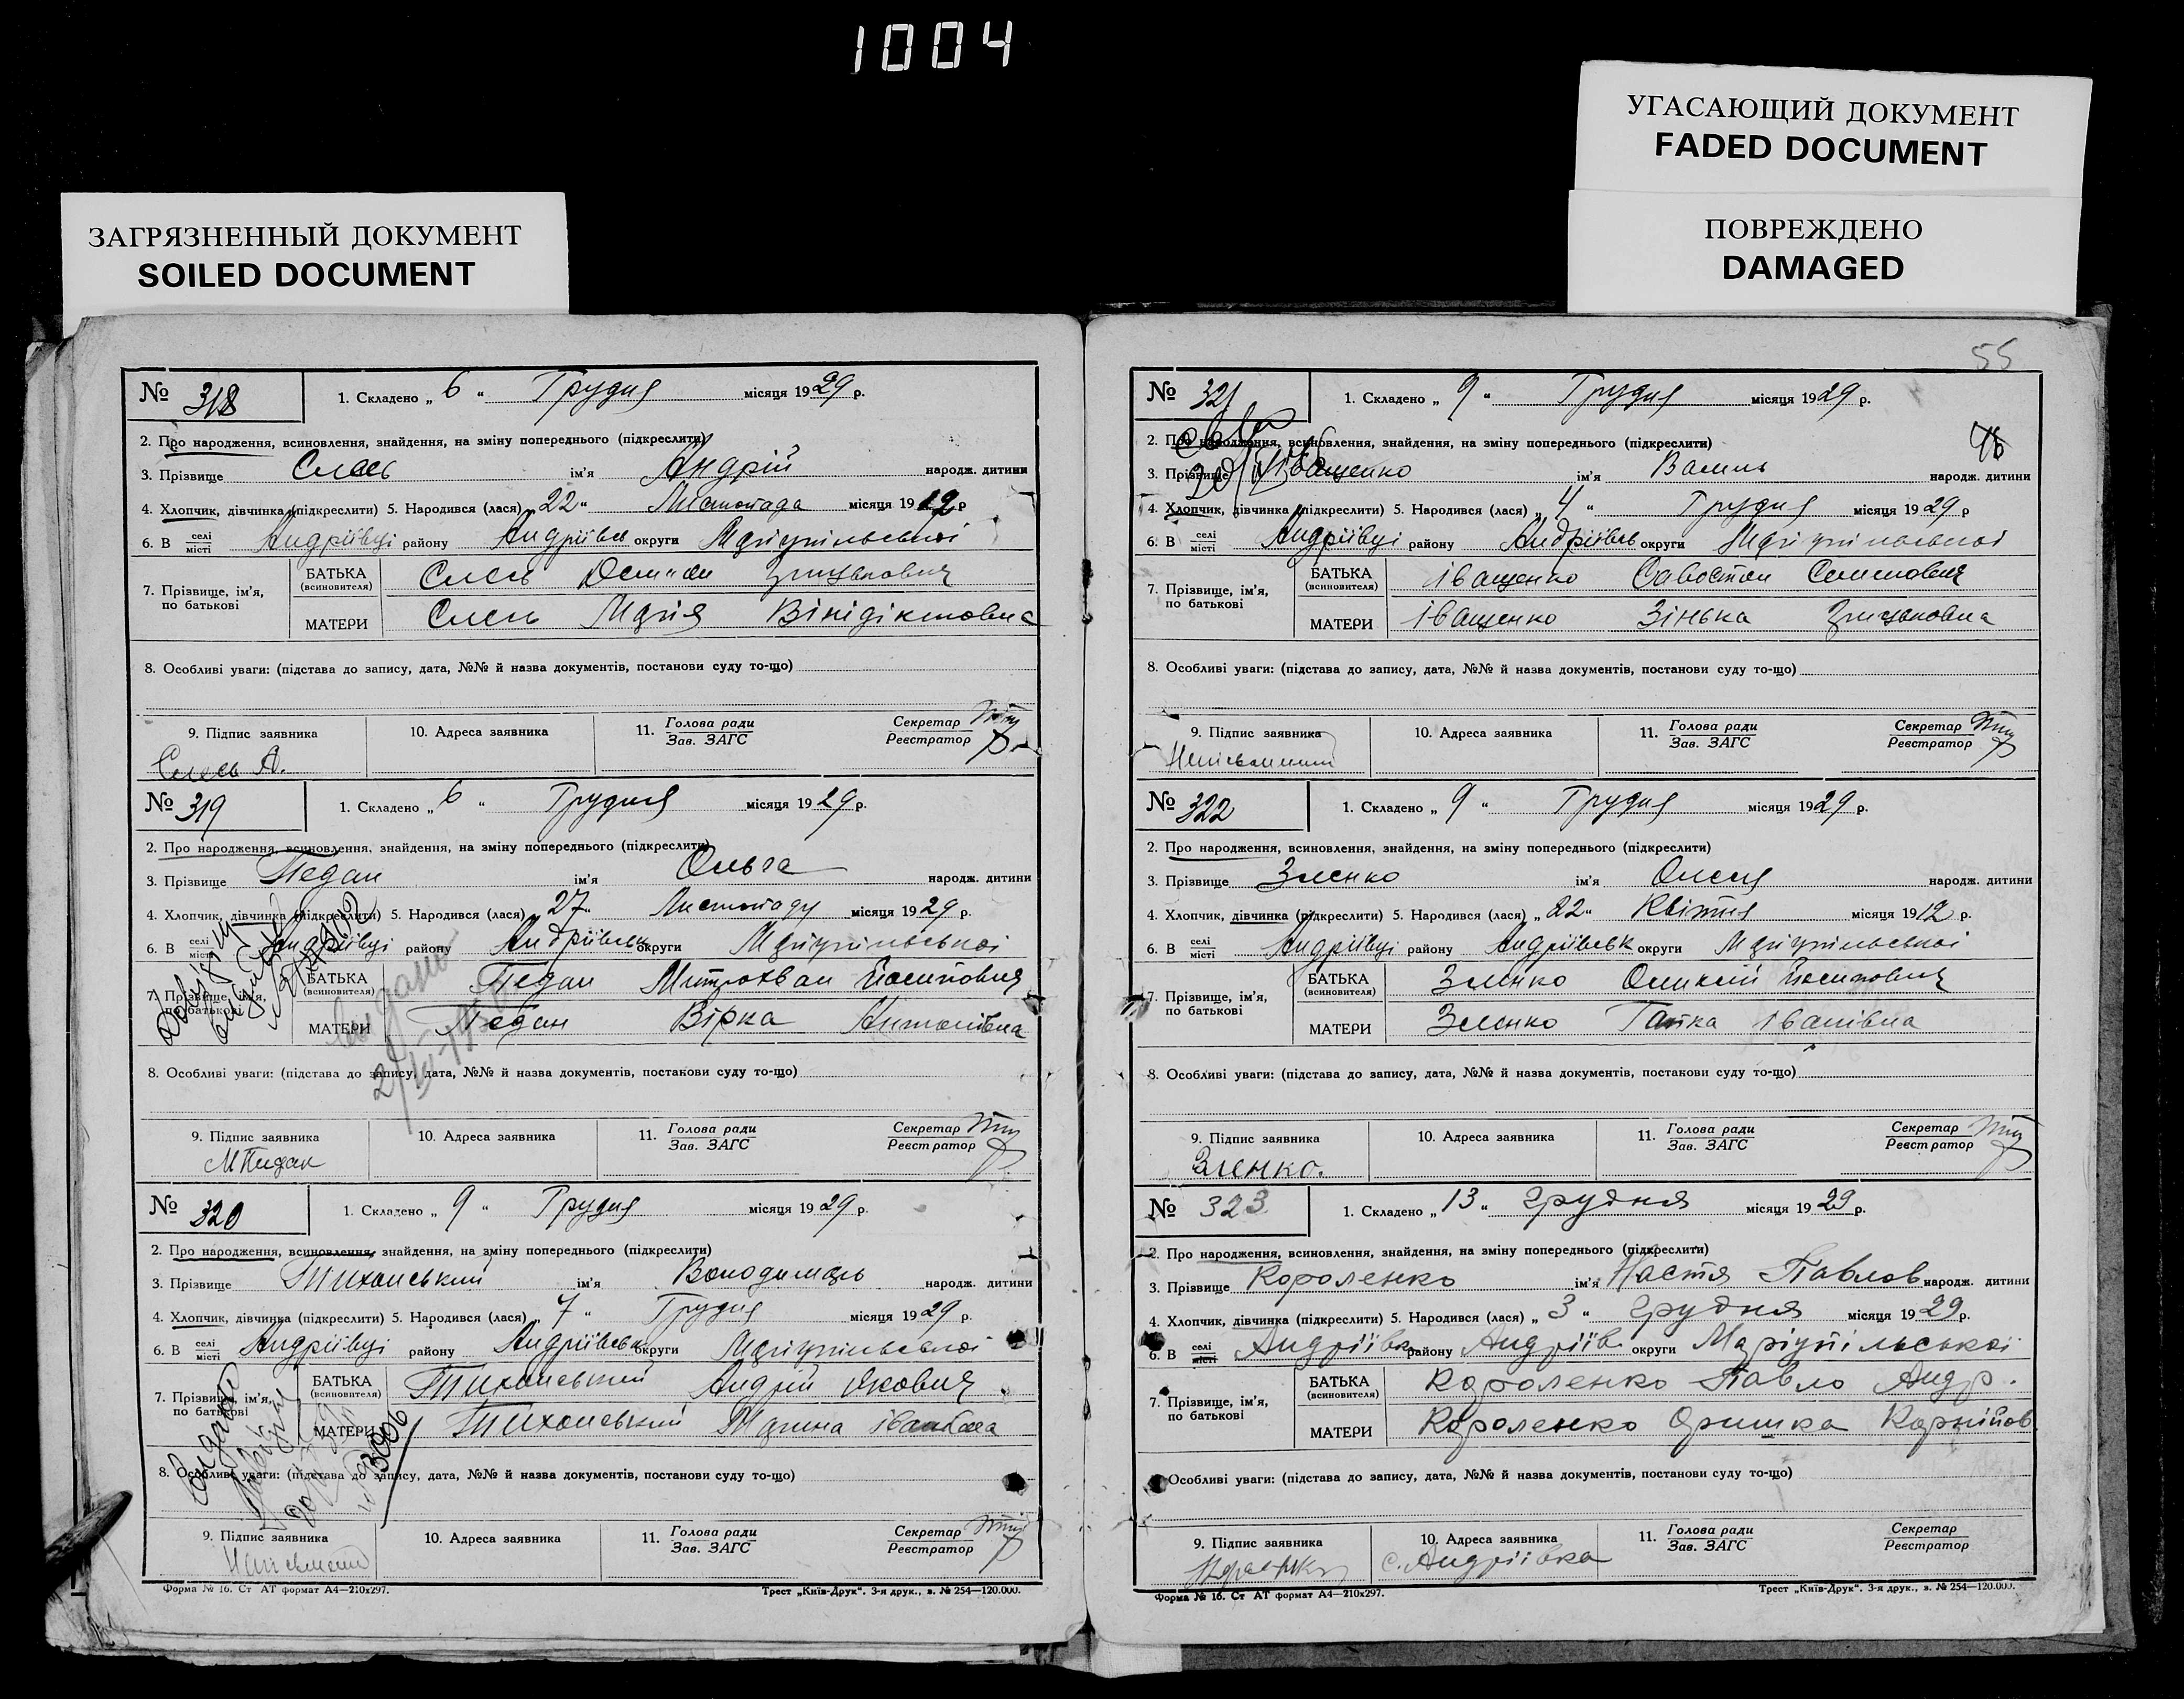 1004
УГАСАЮЩИЙ ДОКУМЕНТ
FADED DOCUMENT
ЗАГРЯЗНЕННЫЙ ДОКУМЕНТ
SOILED DOCUMENT
ПОВРЕЖДЕНО
DAMAGED
№ 318 1. Складено „ 6 “ Грудня місяця 1929 р.
2. Про народження, всиновлення, знайдення, на зміну попереднього (підкреслити)
3. Прізвище Слесь ім'я Андрій народж. дитини
4. Хлопчик, дівчинка (підкреслити) 5. Народився (лася) „ 22 “ Листопада місяця 1912 р
6. В селі місті Андріївці району Андріївськ округи Маріупільської
7. Прізвище, ім'я, по батькові БАТЬКА (всиновителя) Слесь Грицькович
МАТЕРИ Слесь Марія Вінідіктовна
8. Особливі уваги: (підстава до запису, дата, №№ й назва документів, постанови суду то-що)
9. Підпис заявника 10. Адреса заявника 11. Голова ради Зав. ЗАГС Секретар Реєстратор
Слесь А.
№ 319 1. Складено „ 6 “ Грудня місяця 1929 р.
2. Про народження, всиновлення, знайдення, на зміну попереднього (підкреслити)
3. Прізвище Педан ім'я Ольга народж. дитини
4. Хлопчик, дівчинка (підкреслити) 5. Народився (лася) „ 27 “ Листопаду місяця 1929 р.
6. В селі місті Андріївці району Андріївськ округи Маріупільської
7. Прізвище, ім'я, по батькові БАТЬКА (всиновителя) Педан Митрохван Йосипович
МАТЕРИ Педан Вірка Антонівна
8. Особливі уваги: (підстава до запису, дата, №№ й назва документів, постанови суду то-що)
9. Підпис заявника 10. Адреса заявника 11. Голова ради Зав. ЗАГС Секретар Реєстратор
М Педан
№ 320 1. Складено „ 9 “ Грудня місяця 1929 р.
2. Про народження, всиновлення, знайдення, на зміну попереднього (підкреслити)
3. Прізвище Тиханський ім'я Володимирь народж. дитини
4. Хлопчик, дівчинка (підкреслити) 5. Народився (лася) „ 7 “ Грудня місяця 1929 р.
6. В селі місті Андріївці району Андріївськ округи Маріупільської
7. Прізвище, ім'я, по батькові БАТЬКА (всиновителя) Тиханський Андрій Якович
МАТЕРИ Тиханський Марина Іванівна
8. Особливі уваги: (підстава до запису, дата, №№ й назва документів, постанови суду то-що)
9. Підпис заявника 10. Адреса заявника 11. Голова ради Зав. ЗАГС Секретар Реєстратор
Форма № 16. Ст АТ формат А4—210x297. Трест „Київ-Друк“. 3-я друк., з. № 254—120.000.
55
№ 321 1. Складено „ 9 “ Грудня місяця 1929 р.
2. Про народження, всиновлення, знайдення, на зміну попереднього (підкреслити)
3. Прізвище Іващенко ім'я Василь народж. дитини
4. Хлопчик, дівчинка (підкреслити) 5. Народився (лася) „ 4 “ Грудня місяця 1929 р
6. В селі місті Андріївці району Андріївськ округи Маріупільської
7. Прізвище, ім'я, по батькові БАТЬКА (всиновителя) Іващенко Савостян Семенович
МАТЕРИ Іващенко Зінька Грицьковна
8. Особливі уваги: (підстава до запису, дата, №№ й назва документів, постанови суду то-що)
9. Підпис заявника 10. Адреса заявника 11. Голова ради Зав. ЗАГС Секретар Реєстратор
Неписьменний
№ 322 1. Складено „ 9 “ Грудня місяця 1929 р.
2. Про народження, всиновлення, знайдення, на зміну попереднього (підкреслити)
3. Прізвище Зленко ім'я Олеся народж. дитини
4. Хлопчик, дівчинка (підкреслити) 5. Народився (лася) „ 22 “ Квітня місяця 1912 р.
6. В селі місті Андріївці району Андріївськ округи Маріупільської
7. Прізвище, ім'я, по батькові БАТЬКА (всиновителя) Зленко Олексій Йосипович
МАТЕРИ Зленко Гапка Іванівна
8. Особливі уваги: (підстава до запису, дата, №№ й назва документів, постанови суду то-що)
9. Підпис заявника 10. Адреса заявника 11. Голова ради Зав. ЗАГС Секретар Реєстратор
Зленко.
№ 323 1. Складено „ 13 “ грудня місяця 1929 р.
2. Про народження, всиновлення, знайдення, на зміну попереднього (підкреслити)
3. Прізвище Короленко ім'я Настя Павлов народж. дитини
4. Хлопчик, дівчинка (підкреслити) 5. Народився (лася) „ 3 “ грудня місяця 1929 р.
6. В селі місті Андріївка району Андріїв округи Маріупільської
7. Прізвище, ім'я, по батькові БАТЬКА (всиновителя) Короленко Павло Андр.
МАТЕРИ Короленко Оришка Корнійов
Особливі уваги: (підстава до запису, дата, №№ й назва документів, постанови суду то-що)
9. Підпис заявника 10. Адреса заявника 11. Голова ради Зав. ЗАГС Секретар Реєстратор
с. Андріївка
Форма № 16. Ст АТ формат А4—210x297. Трест „Київ-Друк“. 3-я друк., з. № 254—120.000.